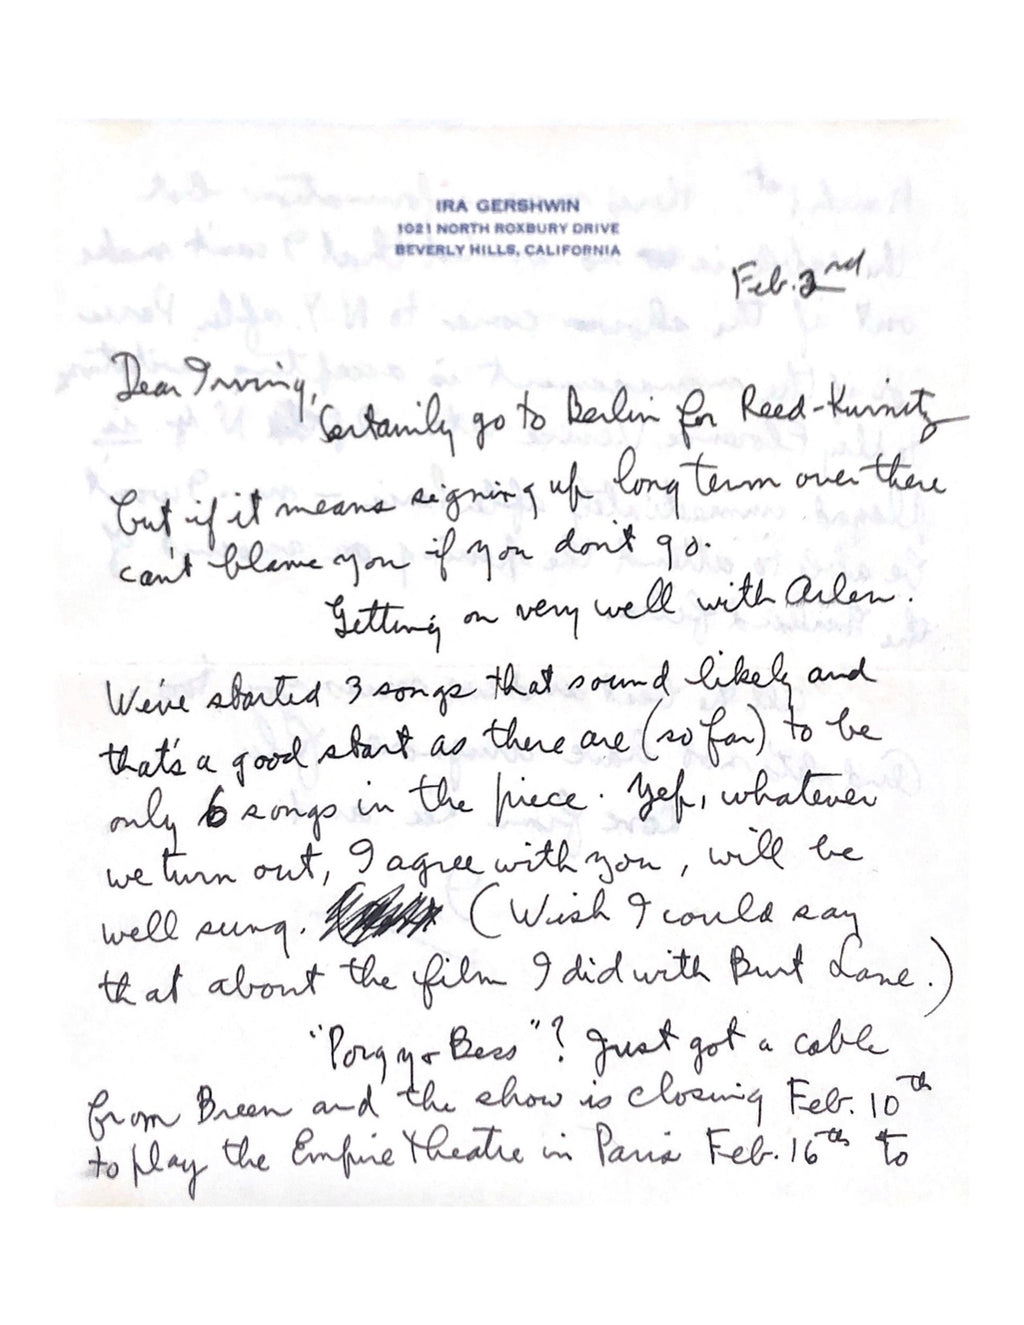 IRA GERSHWIN
1021 NORTH ROXBURY DRIVE
BEVERLY HILLS, CALIFORNIA
Feb. 2nd
Dear Irving,
Certainly go to Berlin for Reed-Kurnitz
but if it means signing up long term over there
can't blame you if you don't go.
Getting on very well with Arlen.
We've started 3 songs that sound likely and
that's a good start as there are (so far) to be
only 6 songs in the piece. Yep, whatever
we turn out, I agree with you, will be
well sung. (Wish I could say
that about the film I did with Burt Lane.)
"Porgy & Bess"? Just got a cable
from Breen and the show is closing Feb. 10th
to play the Empire Theatre in Paris Feb. 16th to